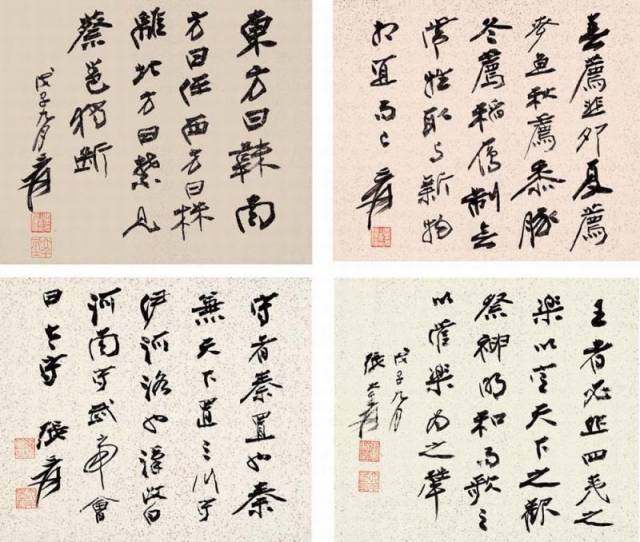 東方曰韎南
方曰任西方曰株
離北方曰禁見
蔡邕獨斷
戊子九月 爰
春薦韭卵夏薦
麥魚秋薦黍豚
冬薦稻雁制無
常牲取與新物
相宜而已 爰
守者秦置也秦
兼天下置三川守
伊河洛也漢改曰
河南守武帝會
曰太守 張爰
王者必作四夷之
樂以定天下之歡
祭神明和而歌之
以管樂為之聲
戊子九月
張爰